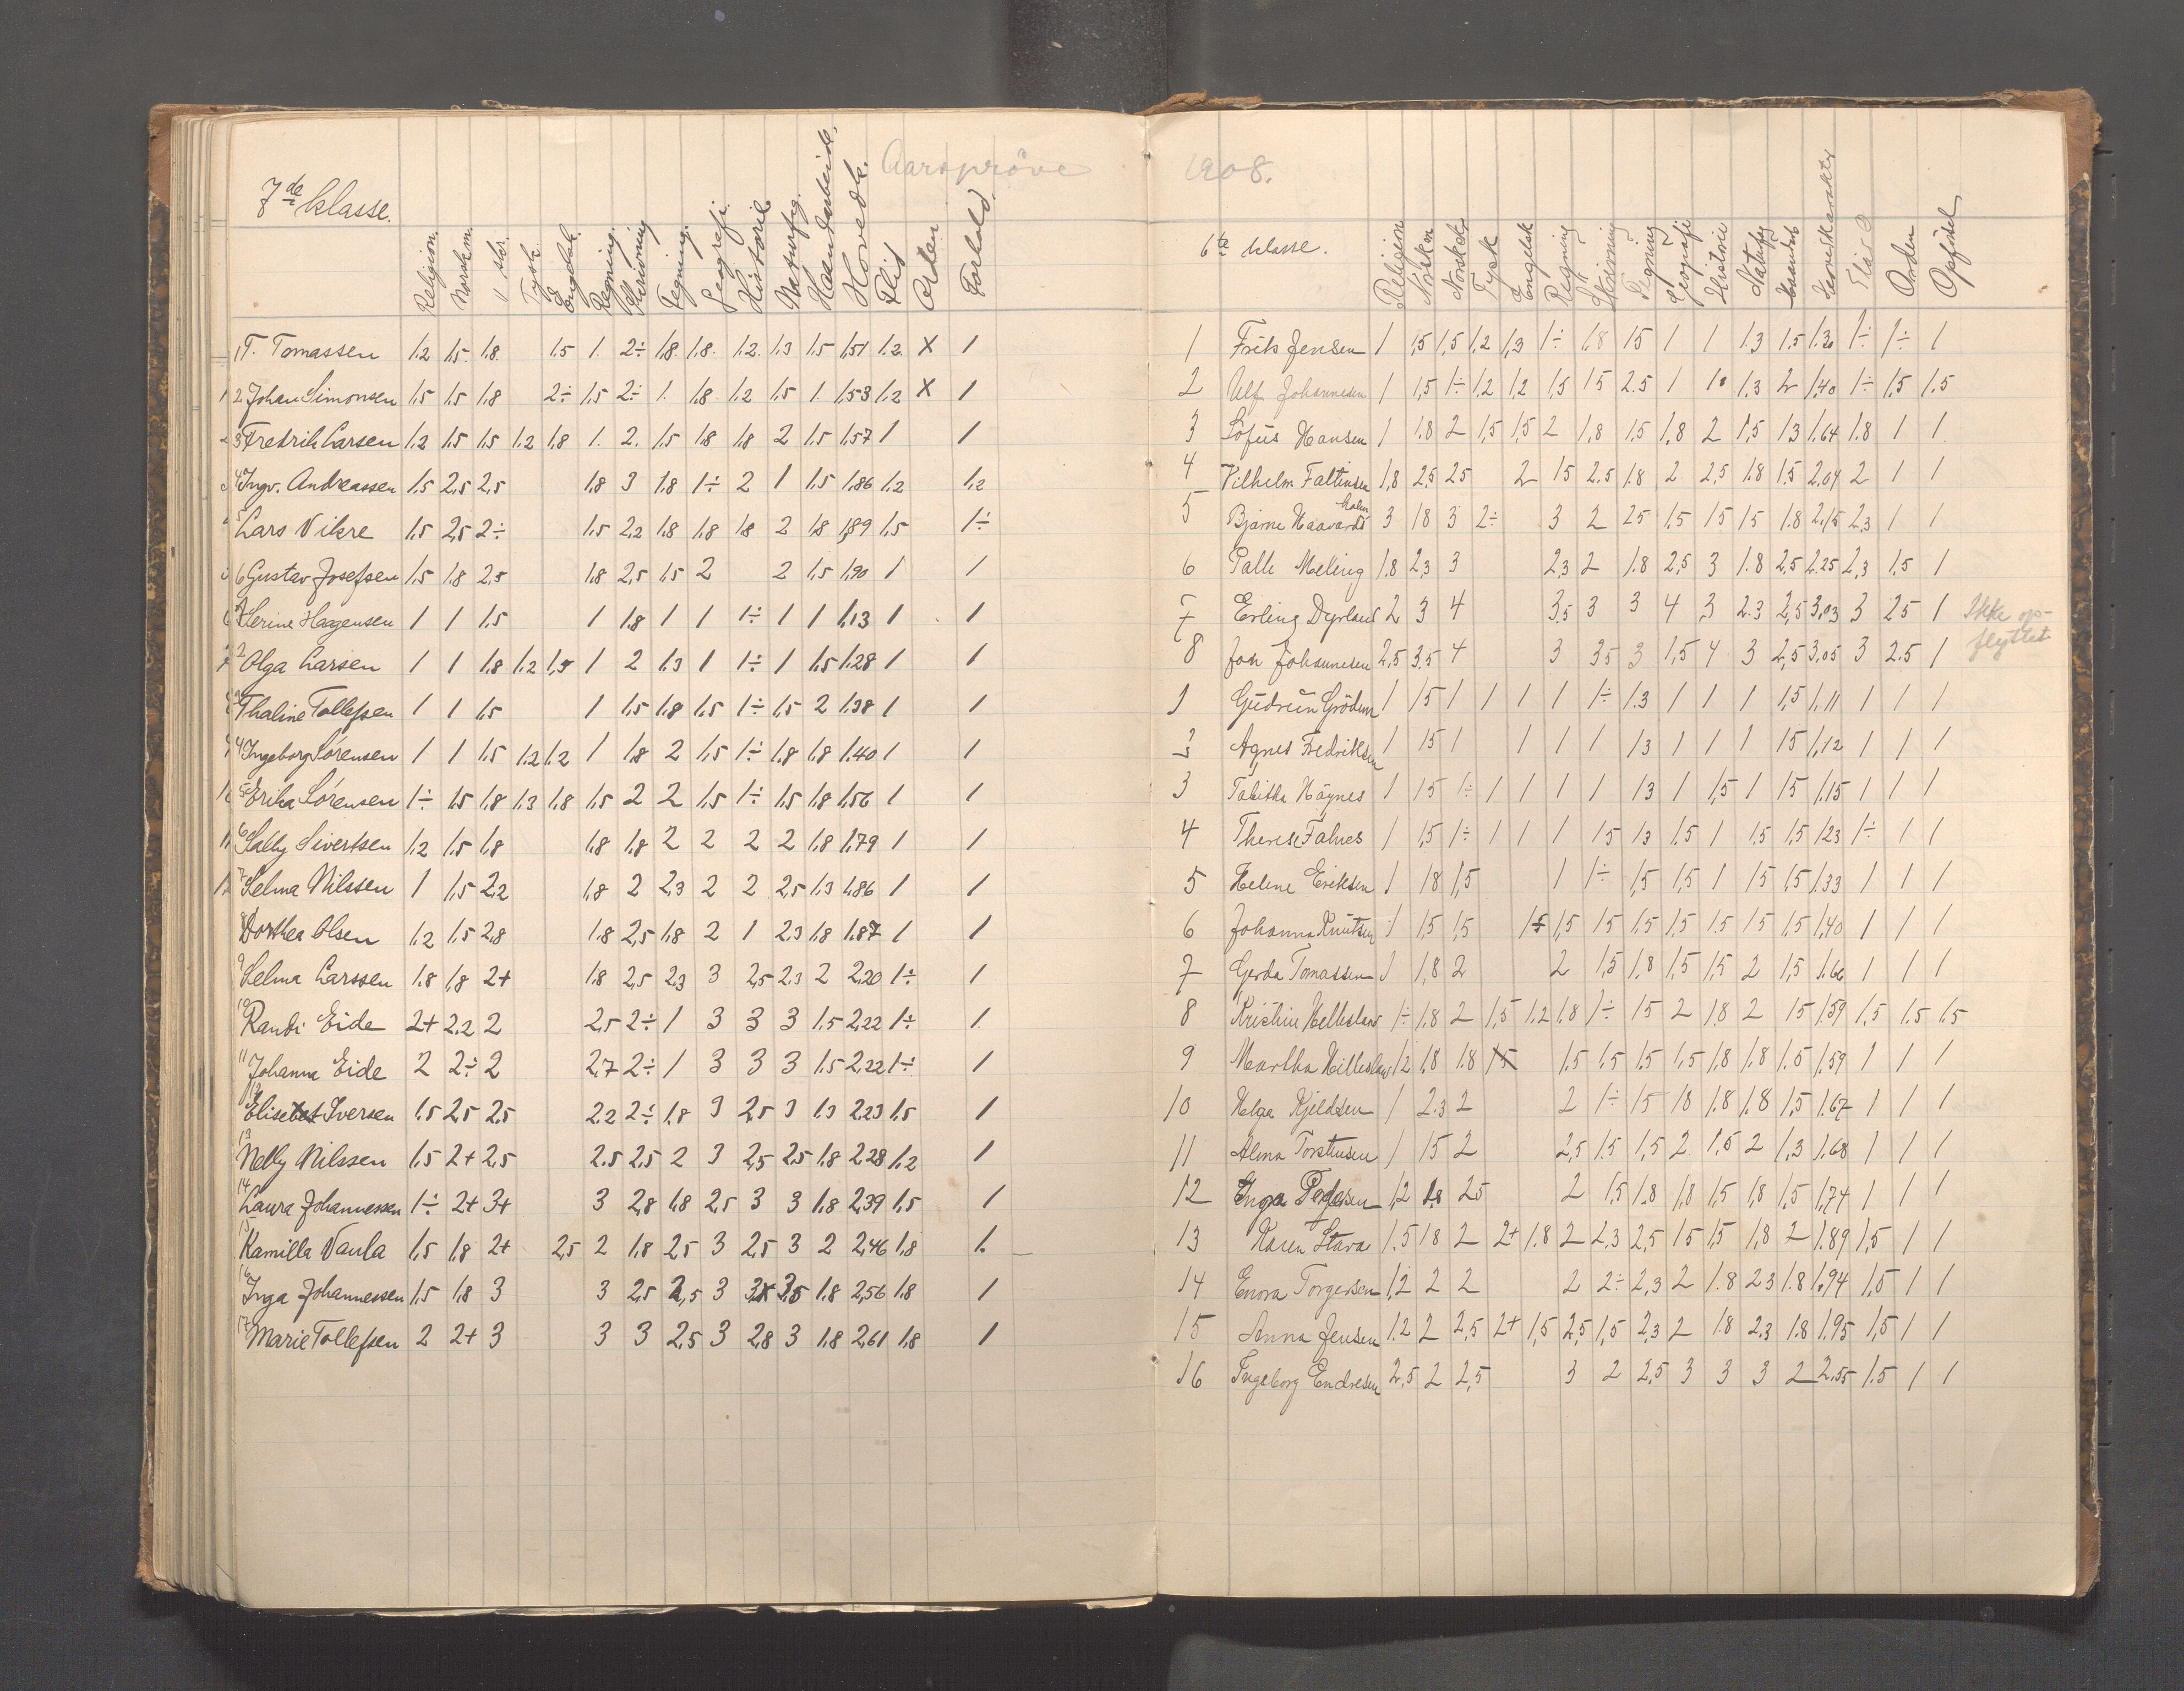 Aarspröve 1908.
7de klasse.
Religion. Norsk m. " skr. Tysk Engelsk. Regning. Skrivning Tegning. Geografi. Historie Naturfag. Haandarbeide. Hovedk. Flid Orden Forhold.
1 T. Tomassen 1.2 1.5 1.8 1.5 1. 2÷ 1.8 1.8. 1.2. 1.3 1.5 1,51 1.2. X 1
1 2 Johan Simonsen 1.5 1.5 1.8 2÷ 1.5 2÷ 1. 1.8 1.2 1.5 1. 1.53 1.2 X 1
2 3 Fredrik Larsen 1.2 1.5 1.5 1.2 1.8 1. 2. 1.5 1.8 1.8 2 1.5 1.57 1 1
3 4 Ingv. Andreassen 1.5 2.5 2.5 1.8 3 1.8 1÷ 2 1 1.5 1.86 1.2 1.2
4 5 Lars Vikre 1.5 2.5 2÷ 1.5 2.2 1.8 1.8 1.8 2 1.8 1.89 1.5 1÷
5 6 Gustav Josefsen 1.5 1.8 2.5 1.8 2.5 1.5 2 2 1.5 1.90 1 1
6 1 Serine Haagensen 1 1 1.5 1 1.8 1 1 1÷ 1 1 1.13 1 1
7 2 Olga Larsen 1 1 1.8 1.2 1.5 1 2 1.3 1 1÷ 1 1.5 1.28 1 1
8 3 Thaline Tollefsen 1 1 1.5 1 1.5 1.8 1.5 1÷ 1.5 2 1.38 1 1
9 4 Ingeborg Sørensen 1 1 1.5 1.2 1.2 1 1.8 2 1.5 1÷ 1.8 1.8 1.40 1 1
10 5 Erika Sørensen 1÷ 1.5 1.8 1.3 1.8 1.5 2 2 1.5 1÷ 1.5 1.8 1.56 1 1
11 6 Sally Sivertsen 1.2 1.5 1.8 1.8 1.8 2 2 2 2 1.8 1.79 1 1
12 7 Selma Nilssen 1 1.5 2.2 1.8 2 2.3 2 2 2.5 1.3 1.86 1 1
8 Dorthea Olsen 1.2 1.5 2.8 1.8 2.5 1.8 2 1 2.3 1.8 1.87 1 1
9 Selma Larssen 1.8 1.8 2+ 1.8 2.5 2.3 3 2.5 2.3 2 2.20 1÷ 1
10 Randi Eide 2+ 2.2 2 2.5 2÷ 1 3 3 3 1.5 2.22 1÷ 1
11 Johanna Eide 2 2÷ 2 2.7 2÷ 1 3 3 3 1.5 2.22 1÷ 1
12 Elisebet Iversen 1.5 2.5 2.5 2.2 2÷ 1.8 3 2.5 3 1.3 2.23 1.5 1
13 Nelly Nilssen 1.5 2+ 2.5 2.5 2.5 2 3 2.5 2.5 1.8 2.28 1.2 1
14 Laura Johannessen 1÷ 2+ 3+ 3 2.8 1.8 2.5 3 3 1.8 2.39 1.5 1
15 Kamilla Vaula 1.5 1.8 2+ 2.5 2 1.8 2.5 3 2.5 3 2 2.46 1.8 1.
16 Inga Johannessen 1.5 1.8 3 3 2.5 2.5 3 3.5 1.8 2.56 1.8 1
17 Marie Tollefsen 2 2+ 3 3 3 2.5 3 2.8 3 1.8 2.61 1.8 1
6te klasse.
Religion Norsk m Norsk sk Tysk Engelsk Regning Skrivning Tegning Geografi Historie Naturfg Haandarb Hovedkarakter Flid Orden Opførsel
1 Frits Jensen 1 1,5 1,5 1,2 1,3 1÷ 1.8 1.5 1 1 1.3 1.5 1.30 1÷ 1÷ 1
2 Ulf Johannesen 1 1,5 1÷ 1.2 1,2 1,5 1.5 2.5 1 1 1,3 2 1,40 1÷ 1,5 1.5
3 Sofus Hansen 1 1.8 2 1,5 1,5 2 1,8 1.5 1,8 2 1,5 1.3 1.64 1.8 1 1
4 Vilhelm Faltinsen 1,8 2.5 2.5 2 1.5 2.5 1.8 2 2,5 1.8 1.5 2.04 2 1 1
5 Bjarne Haavards holm 3 1.8 3 2÷ 3 2 2.5 1,5 1.5 1.5 1.8 2,15 2,3 1 1
6 Palle Meling 1,8 2,3 3 2,3 2 1.8 2,5 3 1.8 2,5 2.25 2,3 1,5 1
7 Erling Dyrland 2 3 4 3,5 3 3 4 3 2.3 2,5 3,03 3 2.5 1 Ikke op-
8 Joh Johannesen 2,5 3.5 4 3 3.5 3 1,5 4 3 2,5 3,05 3 2.5 1 flyttet
1 Gudrun Grødem 1 1.5 1 1 1 1 1÷ 1.3 1 1 1 1,5 1,11 1 1 1
2 Agnes Fredriksen 1 1.5 1 1 1 1 1.3 1 1 1 1.5 1,12 1 1 1
3 Tabitha Høynes 1 1.5 1÷ 1 1 1 1 1.3 1 1,5 1 1.5 1.15 1 1 1
4 Therese Falnes 1 1.5 1÷ 1 1 1 1.5 1.3 1.5 1 1.5 1.5 1.23 1÷ 1 1
5 Helene Eriksen 1 1.8 1,5 1 1÷ 1,5 1,5 1 1.5 1,5 1.33 1 1 1
6 Johanna Knutsen 1 1,5 1,5 1.5 1,5 1.5 1.5 1,5 1.5 1.5 1.5 1,40 1 1 1
7 Gerda Tomassen 1 1,8 2 2 1,5 1,8 1,5 1,5 2 1,5 1.66 1 1 1
8 Kristine Helleland 1÷ 1.8 2 1,5 1.2 1.8 1÷ 1.5 2 1.8 2 1.5 1.59 1,5 1.5 1.5
9 Martha Hilleslan 1,2 1.8 1.8 1.5 1.5 1.5 1,5 1,8 1.8 1.5 1,59 1 1 1
10 Helga Kjeldsen 1 2.3 2 2 1÷ 1.5 1.8 1.8 1.8 1,5 1.67 1 1 1
11 Alma Torstensen 1 1.5 2 2,5 1.5 1,5 2 1,5 2 1,3 1.68 1 1 1
12 Inga Pedersen 1,2 1.8 2.5 2 1,5 1.8 1,8 1,5 1,8 1,5 1,74 1 1 1
13 Karen Stava 1.5 1.8 2 2+ 1.8 2 2.3 2,5 1.5 1,5 1,8 2 1.89 1,5 1 1
14 Enora Torgersen 1,2 2 2 2 2÷ 2,3 2 1.8 2.3 1.8 1.94 1,5 1 1
15 Anna Jensen 1.2 2 2,5 2+ 1,5 2,5 1,5 2,3 2 1.8 2.3 1.8 1.95 1,5 1 1
16 Ingeborg Endresen 2,5 2 2,5 3 2 2,5 3 3 3 2 2.55 1.5 1 1